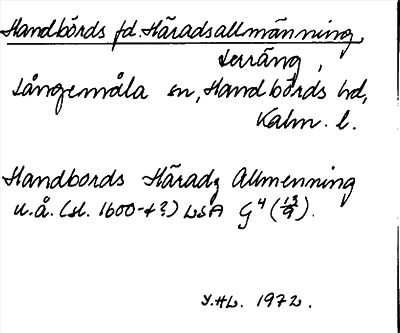 Handbörds fd. Häradsallmänning,
terräng,
Långemåla sn, Handbörds hd,
Kalm. l.
Handbords Häradz Allmenning
u.å. (sl. 1600-t ?) LSA G⁴ (13/9).
Y.HL. 1972.